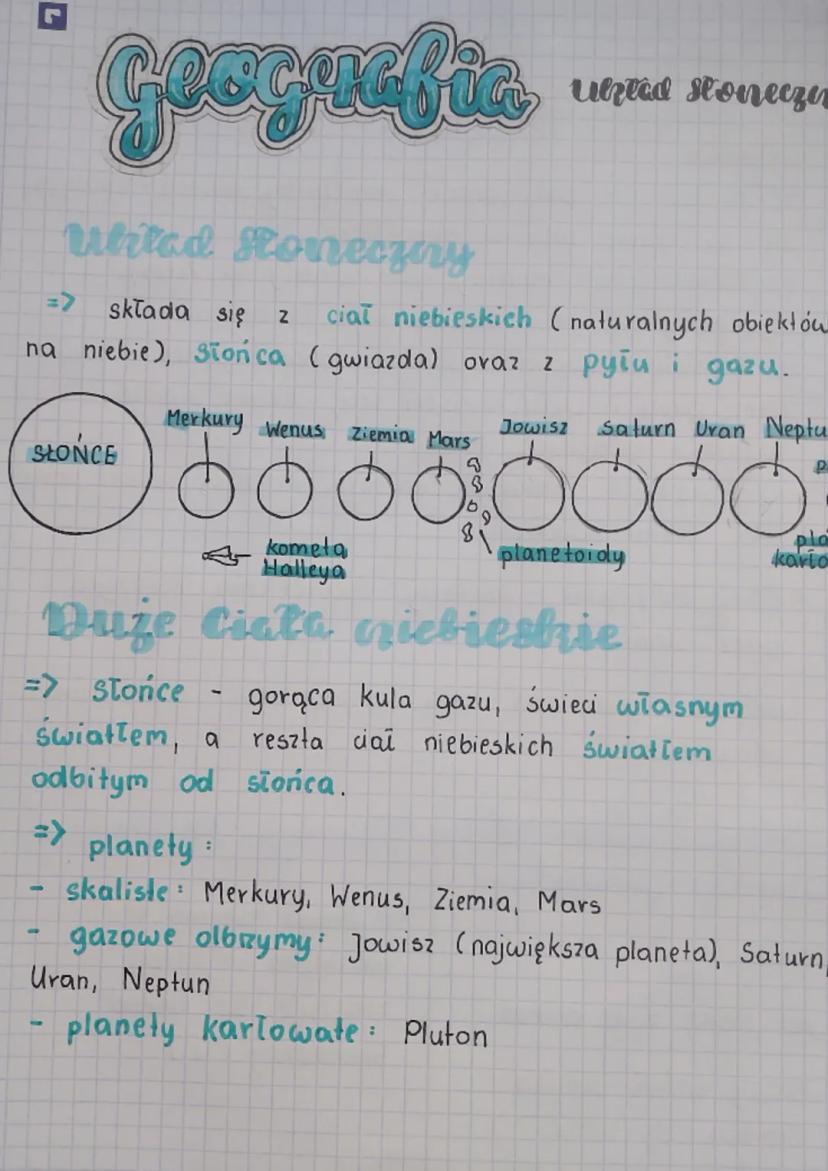 Geografia
układ słoneczn
układ słoneczny
=> składa się z ciał niebieskich (naturalnych obiektów
na niebie), słońca (gwiazda) oraz z pyłu i gazu.
Merkury Wenus Ziemia Mars Jowisz Saturn Uran Neptu
SŁOŃCE
kometa
Halleya
planetoidy
pla
karło
Duże Ciała niebieskie
=> słońce - gorąca kula gazu, świeci własnym
światłem, a reszta ciał niebieskich światłem
odbitym od słońca.
=> planety:
- skaliste: Merkury, Wenus, Ziemia, Mars
- gazowe olbrzymy: Jowisz (największa planeta), Saturn,
Uran, Neptun
- planety karłowate: Pluton